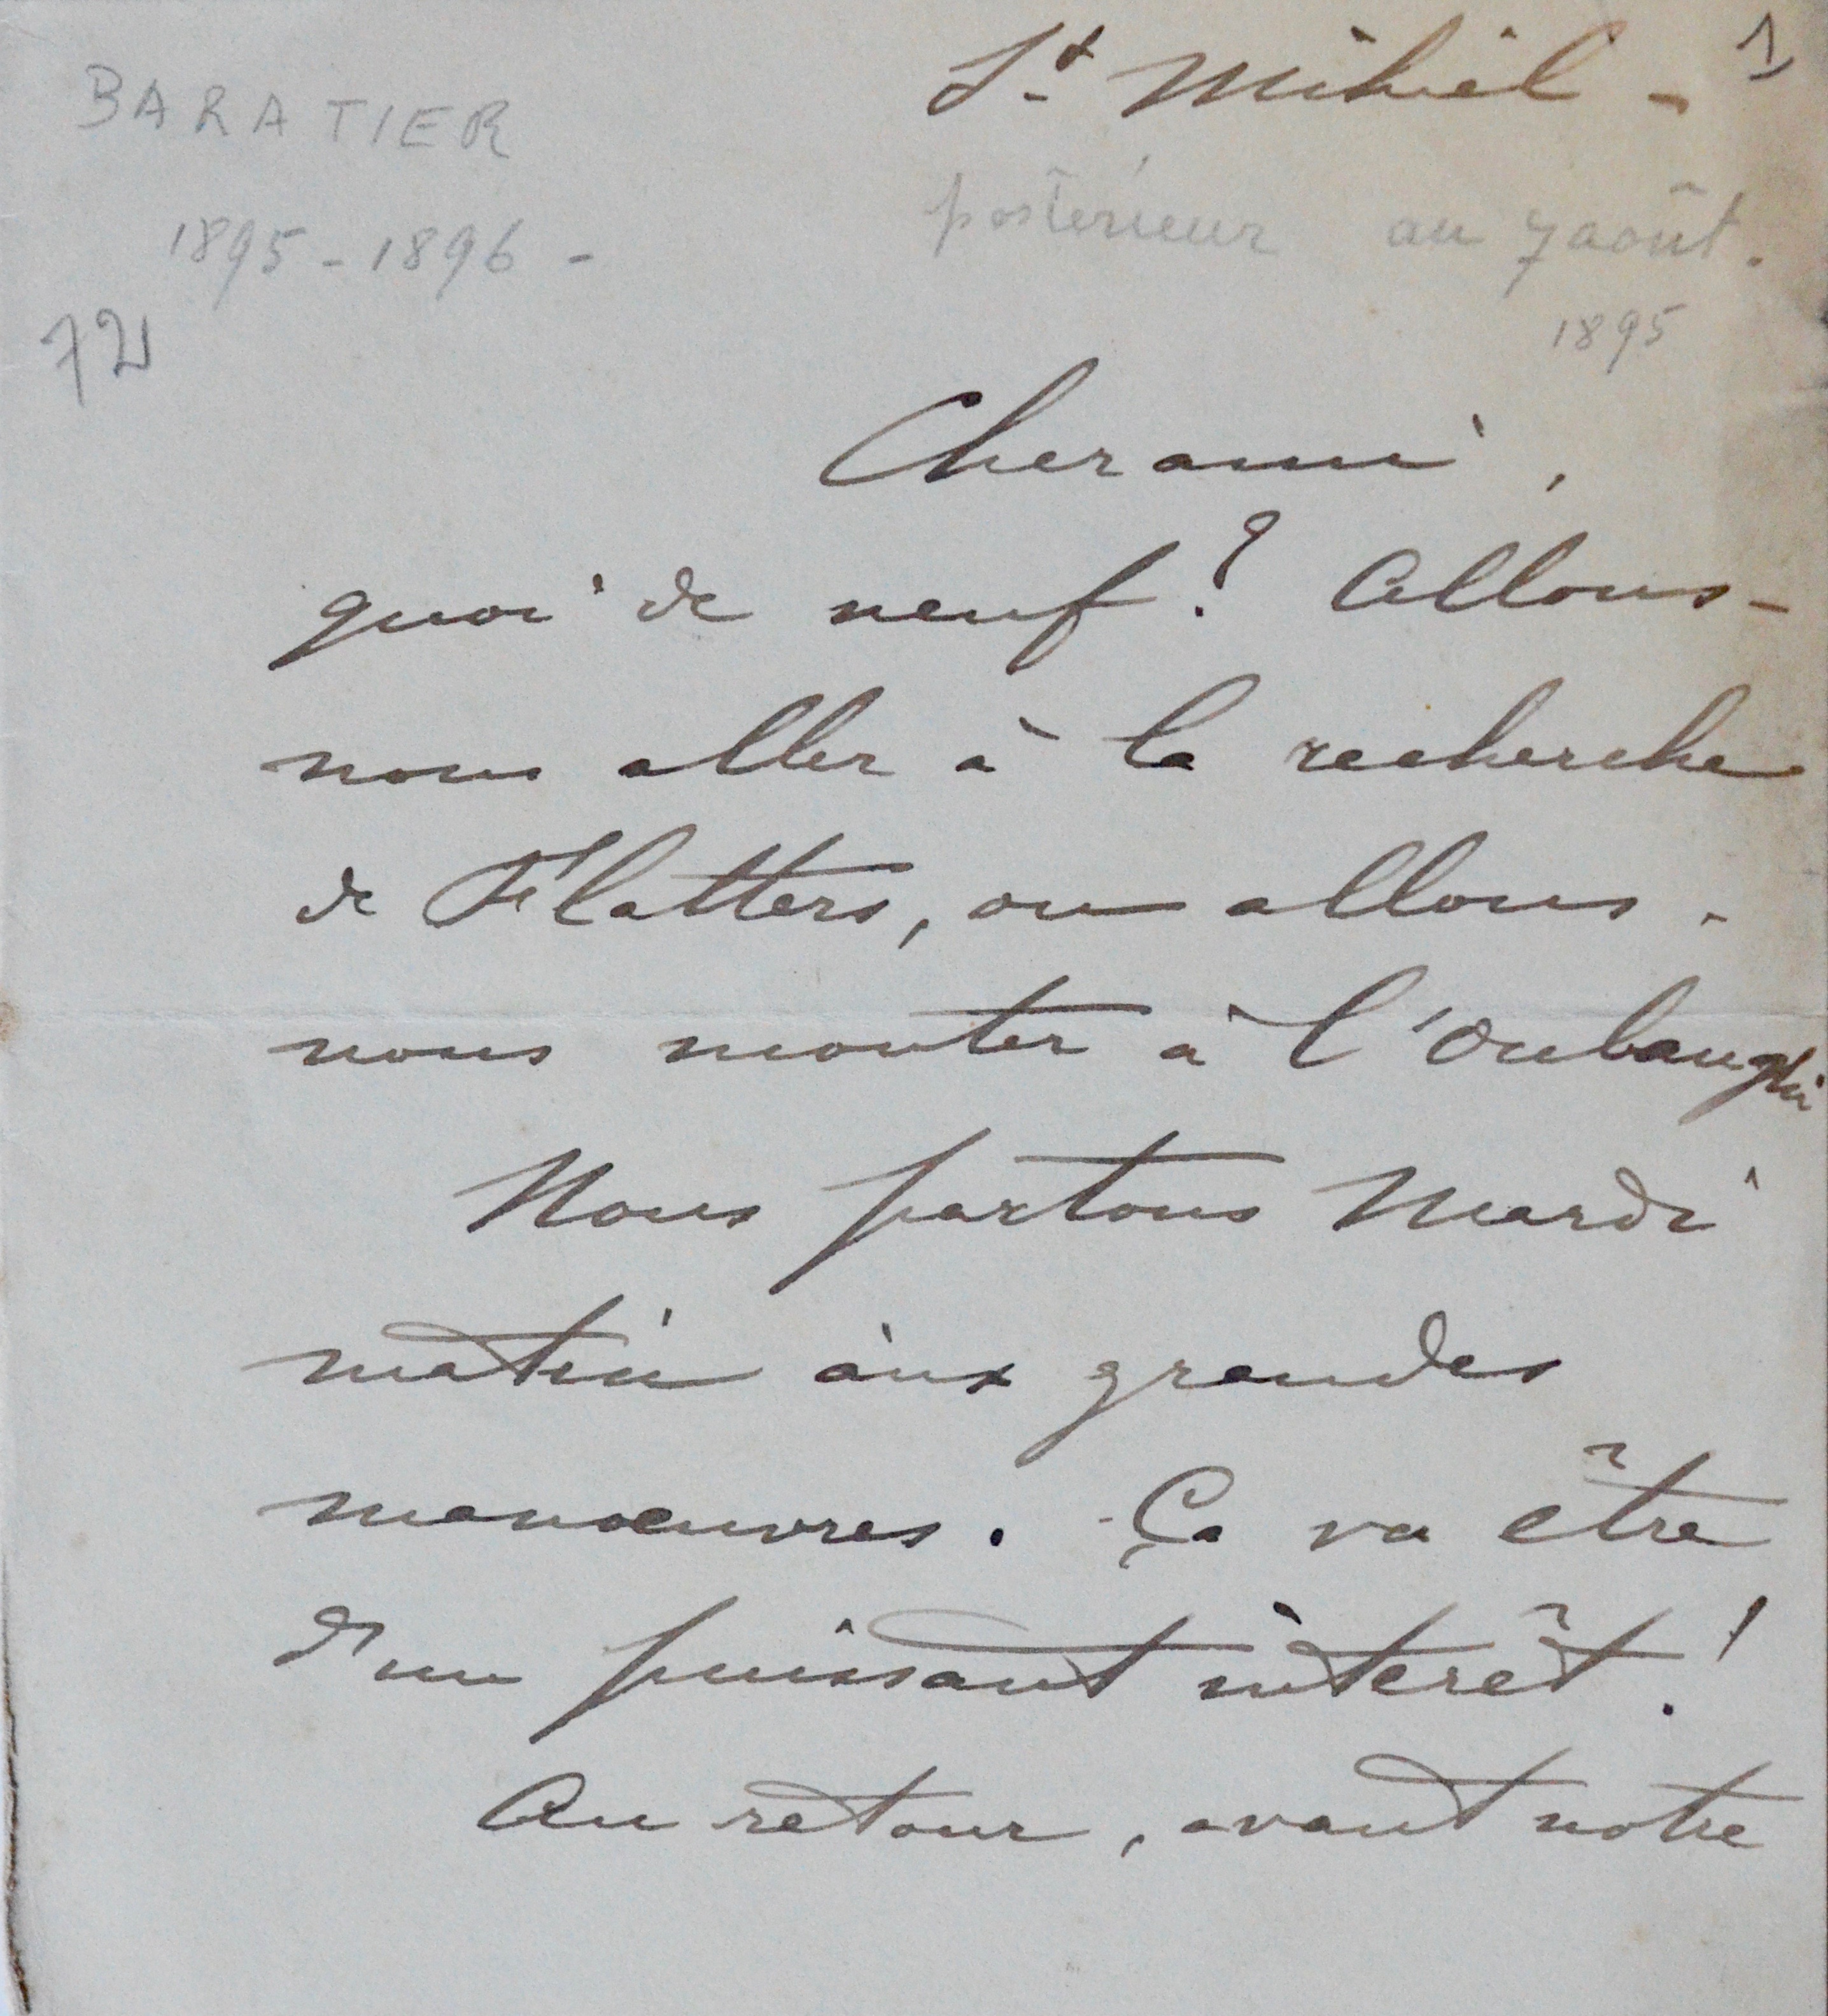 BARATIER
1895-1896-
72
St Mihiel - 1
postérieur au 7 août.
1895
Cher ami,
quoi de neuf ? Allons-
nous aller à la recherche
de Flatters, ou allons-
nous monter à l'Oubanghi
Nous partons Mardi
matin aux grandes
manoeuvres. Ça va être
d'un puissant intérêt !
Au retour, avant notre